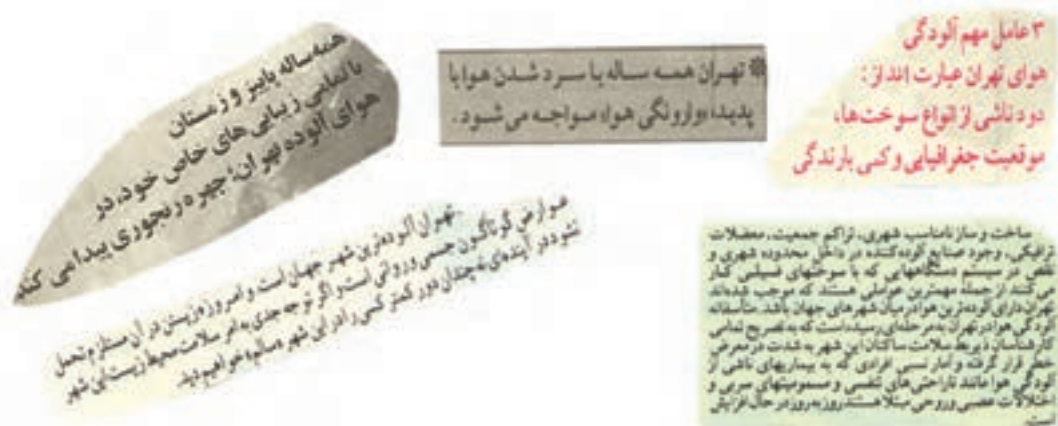 ۳ عامل مهم آلودگی
هوای تهران عبارت انداز:
دود ناشی از انواع سوخت‌ها،
موقعیت جغرافیایی و کمی بارندگی
❋ تهران همه ساله با سرد شدن هوا با
پدیده «وارونگی هوا» مواجه می‌شود.
همه ساله پاییز و زمستان
با تمامی زیبایی‌های خاص خود، در
هوای آلوده تهران؛ چهره رنجوری پیدا می‌کند
تهران آلوده‌ترین شهر جهان است و امروزه زیستن در آن مستلزم تحمل
عوارض گوناگون جسمی و روانی است و اگر توجه جدی به امر سلامت محیط زیست این شهر
نشود در آینده‌ای نه چندان دور کمتر کسی را در این شهر «سالم» خواهیم دید.
ساخت و ساز نامناسب شهری، تراکم جمعیت، معضلات
ترافیکی، وجود صنایع آلوده‌کننده در داخل محدوده شهری و
نقص در سیستم دستگاههایی که با سوختهای فسیلی کار
می‌کنند از جمله مهمترین عواملی هستند که موجب شده‌اند
تهران دارای آلوده‌ترین هوا در میان شهرهای جهان باشد. متأسفانه
آلودگی هوا در تهران به مرحله‌ای رسیده است که به تصریح تمامی
کارشناسان ذیربط سلامت ساکنان این شهر به شدت در معرض
خطر قرار گرفته و آمار نسبی افرادی که به بیماریهای ناشی از
آلودگی هوا مانند ناراحتی‌های تنفسی و مسمومیتهای سربی و
اختلالات عصبی و روحی مبتلا هستند روز به روز در حال افزایش
است.